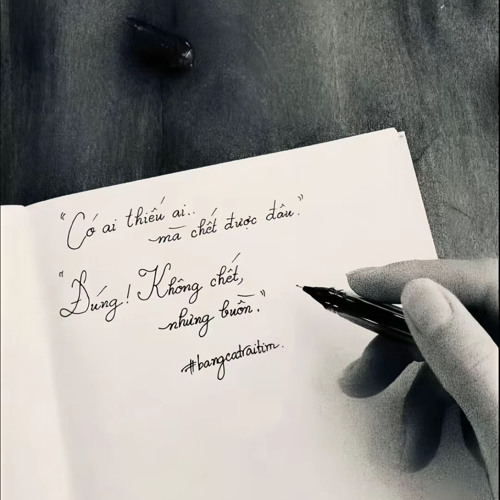 "Có ai thiếu ai..
mà chết được đâu."
"Đúng! Không chết,
nhưng buồn."
#bangcatraitim.